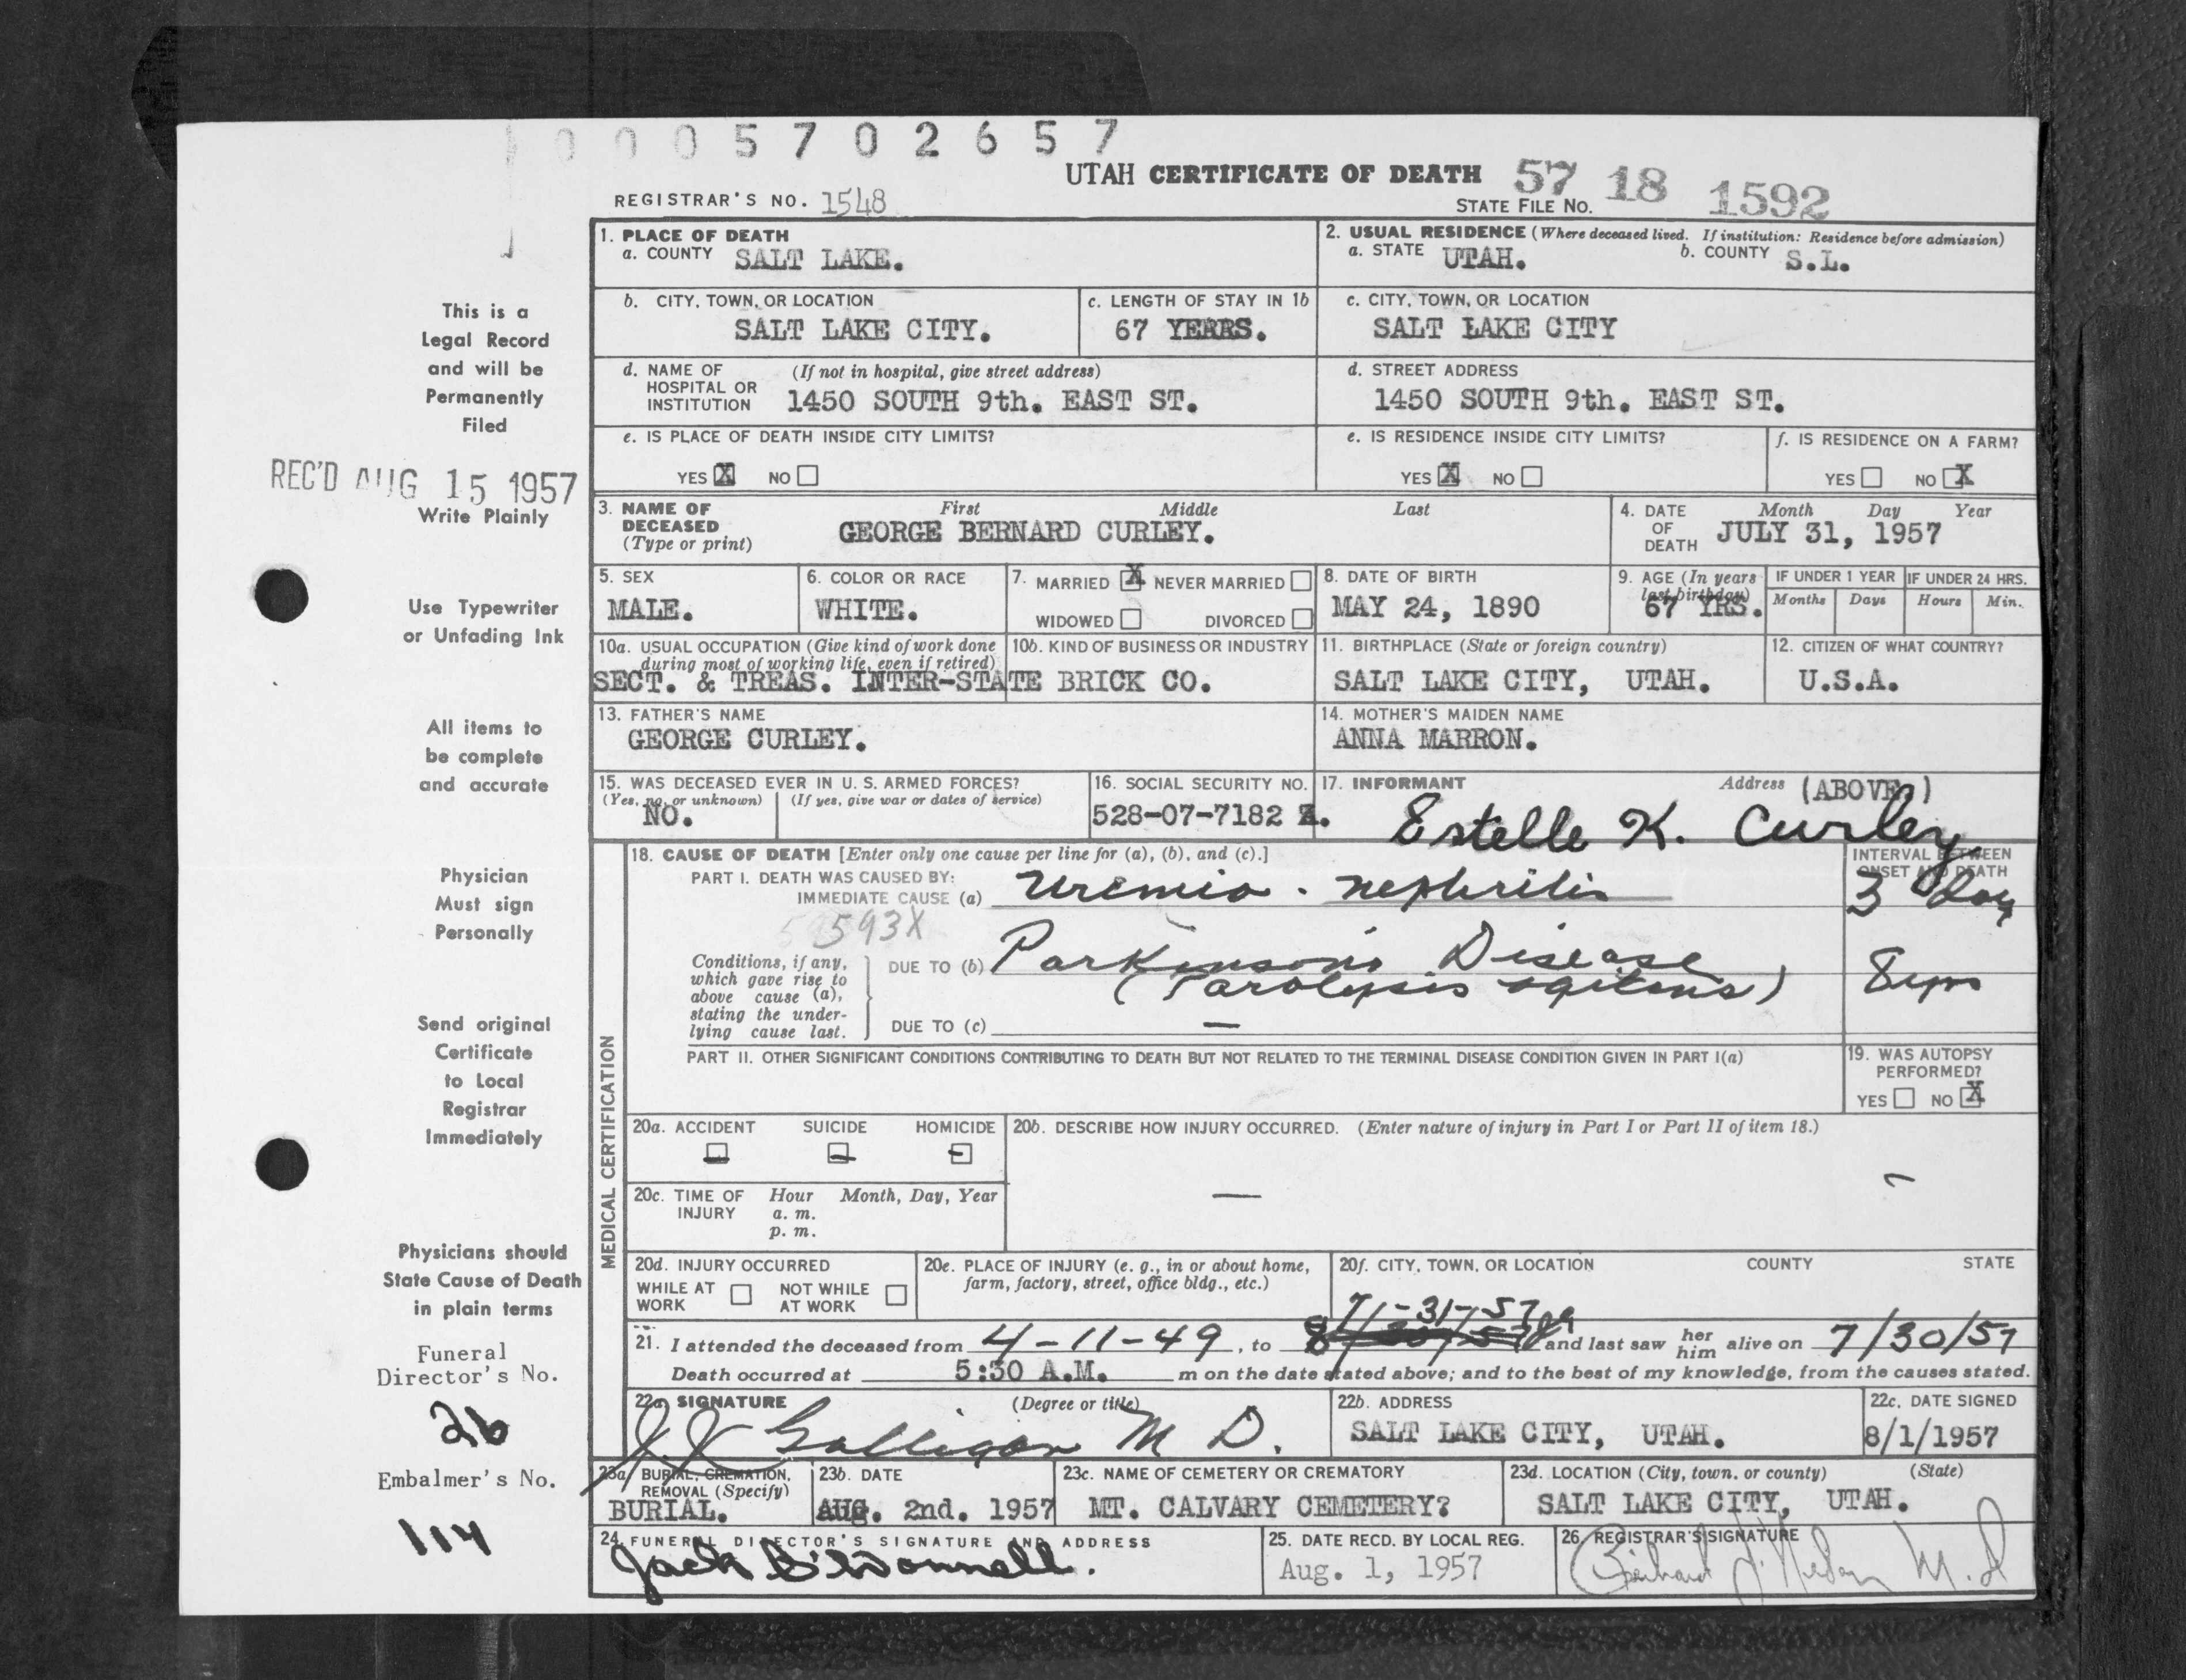 0005702657
UTAH CERTIFICATE OF DEATH 57 18 1592
REGISTRAR'S NO. 1548
STATE FILE NO.
This is a
Legal Record
and will be
Permanently
Filed
REC'D AUG 15 1957
Write Plainly
Use Typewriter
or Unfading Ink
All items to
be complete
and accurate
Physician
Must sign
Personally
Send original
Certificate
to Local
Registrar
Immediately
Physicians should
State Cause of Death
in plain terms
Funeral
Director's No.
26
Embalmer's No.
114
1. PLACE OF DEATH
a. COUNTY SALT LAKE.
2. USUAL RESIDENCE (Where deceased lived. If institution: Residence before admission)
a. STATE UTAH. b. COUNTY S.L.
b. CITY, TOWN, OR LOCATION
SALT LAKE CITY.
c. LENGTH OF STAY IN 1b
67 YEARS.
c. CITY, TOWN, OR LOCATION
SALT LAKE CITY
d. NAME OF (If not in hospital, give street address)
HOSPITAL OR
INSTITUTION 1450 SOUTH 9th. EAST ST.
d. STREET ADDRESS
1450 SOUTH 9th. EAST ST.
e. IS PLACE OF DEATH INSIDE CITY LIMITS?
YES X NO
e. IS RESIDENCE INSIDE CITY LIMITS?
YES X NO
f. IS RESIDENCE ON A FARM?
YES NO X
3. NAME OF First Middle Last
DECEASED
(Type or print)
GEORGE BERNARD CURLEY.
4. DATE Month Day Year
OF
DEATH JULY 31, 1957
5. SEX
MALE.
6. COLOR OR RACE
WHITE.
7. MARRIED X NEVER MARRIED
WIDOWED DIVORCED
8. DATE OF BIRTH
MAY 24, 1890
9. AGE (In years
last birthday)
67 YRS.
IF UNDER 1 YEAR
Months Days
IF UNDER 24 HRS.
Hours Min.
10a. USUAL OCCUPATION (Give kind of work done
during most of working life, even if retired)
10b. KIND OF BUSINESS OR INDUSTRY
SECT. & TREAS. INTER-STATE BRICK CO.
11. BIRTHPLACE (State or foreign country)
SALT LAKE CITY, UTAH.
12. CITIZEN OF WHAT COUNTRY?
U.S.A.
13. FATHER'S NAME
GEORGE CURLEY.
14. MOTHER'S MAIDEN NAME
ANNA MARRON.
15. WAS DECEASED EVER IN U. S. ARMED FORCES?
(Yes, no, or unknown) (If yes, give war or dates of service)
NO.
16. SOCIAL SECURITY NO.
528-07-7182
17. INFORMANT Address (ABOVE.)
Estelle K. Curley
MEDICAL CERTIFICATION
18. CAUSE OF DEATH [Enter only one cause per line for (a), (b), and (c).]
INTERVAL BETWEEN
ONSET AND DEATH
PART I. DEATH WAS CAUSED BY:
IMMEDIATE CAUSE (a) Uremia - nephritis 3 day
593X
Conditions, if any,
which gave rise to
above cause (a),
stating the under-
lying cause last.
DUE TO (b) Parkinson's Disease
(Paralysis agitans) 8 yrs
DUE TO (c) —
PART II. OTHER SIGNIFICANT CONDITIONS CONTRIBUTING TO DEATH BUT NOT RELATED TO THE TERMINAL DISEASE CONDITION GIVEN IN PART I(a)
19. WAS AUTOPSY
PERFORMED?
YES NO X
20a. ACCIDENT SUICIDE HOMICIDE
20b. DESCRIBE HOW INJURY OCCURRED. (Enter nature of injury in Part I or Part II of item 18.)
20c. TIME OF Hour Month, Day, Year
INJURY a. m.
p. m.
20d. INJURY OCCURRED
WHILE AT WORK NOT WHILE AT WORK
20e. PLACE OF INJURY (e. g., in or about home,
farm, factory, street, office bldg., etc.)
20f. CITY, TOWN, OR LOCATION COUNTY STATE
7-31-57
21. I attended the deceased from 4-11-49, to and last saw her him alive on 7/30/57
Death occurred at 5:30 A.M. m on the date stated above; and to the best of my knowledge, from the causes stated.
22a. SIGNATURE (Degree or title)
J.J. Galligan M D.
22b. ADDRESS
SALT LAKE CITY, UTAH.
22c. DATE SIGNED
8/1/1957
23a. BURIAL, CREMATION,
REMOVAL (Specify)
BURIAL.
23b. DATE
AUG. 2nd. 1957
23c. NAME OF CEMETERY OR CREMATORY
MT. CALVARY CEMETERY?
23d. LOCATION (City, town, or county) (State)
SALT LAKE CITY, UTAH.
24. FUNERAL DIRECTOR'S SIGNATURE AND ADDRESS
Jack O'Donnell.
25. DATE RECD. BY LOCAL REG.
Aug. 1, 1957
26. REGISTRAR'S SIGNATURE
M.D